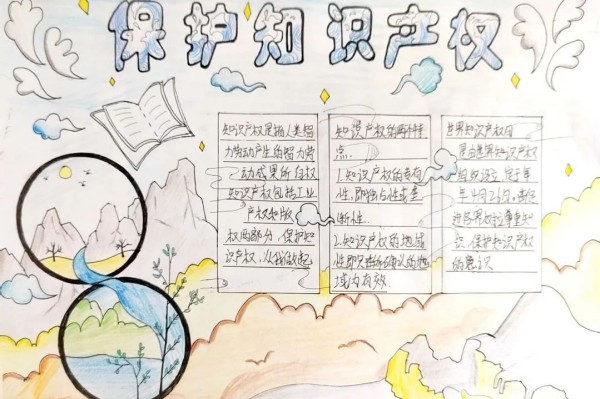 保护知识产权
知识产权是指人类智
力劳动产生的智力劳
动成果所有权
知识产权包括工业
产权和版
权两部分，保护知
识产权，从我做起
知识产权的两种特
点.
1.知识产权的专有
性，即独占性或垄
断性.
2.知识产权的地域
性即只在所确认的地
域内有效.
世界知识产权日
是由世界知识产权
组织设立，定于每
年4月26日.
保护知识产权
的意识